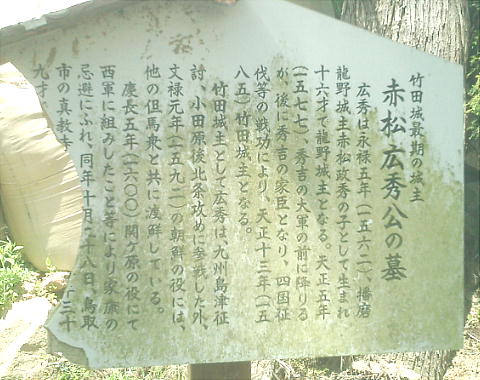 竹田城最期の城主
赤松広秀公の墓
広秀は永禄五年(一五六二)、播磨
龍野城主赤松政秀の子として生まれ
十六才で龍野城主となる。天正五年
(一五七七)、秀吉の大軍の前に降りる
が、後に秀吉の家臣となり、四国征
伐等の戦功により、天正十三年(一五
八五)竹田城主となる。
竹田城主として広秀は、九州島津征
討、小田原後北条攻めに参戦した外、
文禄元年(一五九二)の朝鮮の役には、
他の但馬衆と共に渡鮮している。
慶長五年(一六〇〇)関ケ原の役にて
西軍に組みしたこと等により家康の
忌避にふれ、同年十月二十八日、鳥取
市の真教寺
三十
九才で